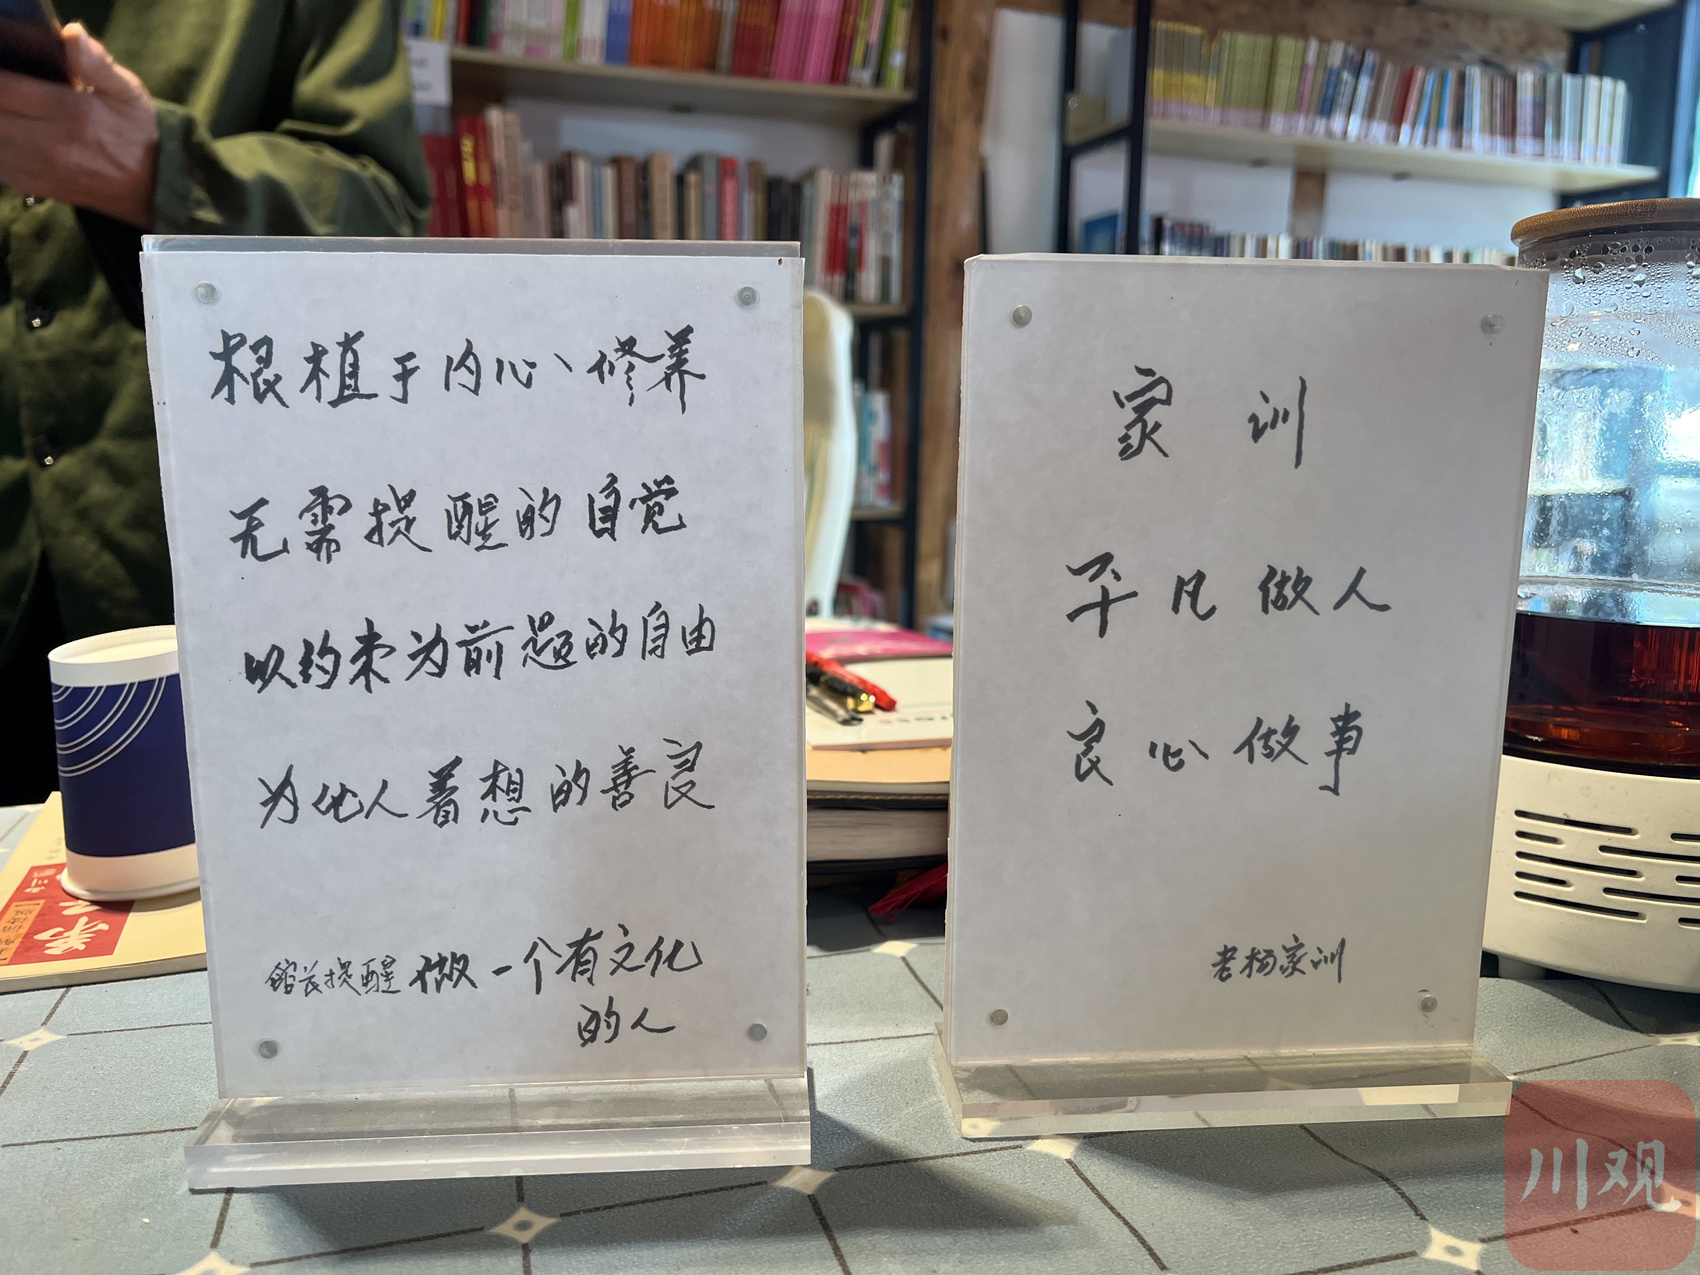 根植于内心丶修养
无需提醒的自觉
以约束为前题的自由
为他人着想的善良
馆长提醒做一个有文化
的人
家训
平凡做人
良心做事
老杨家训
川观